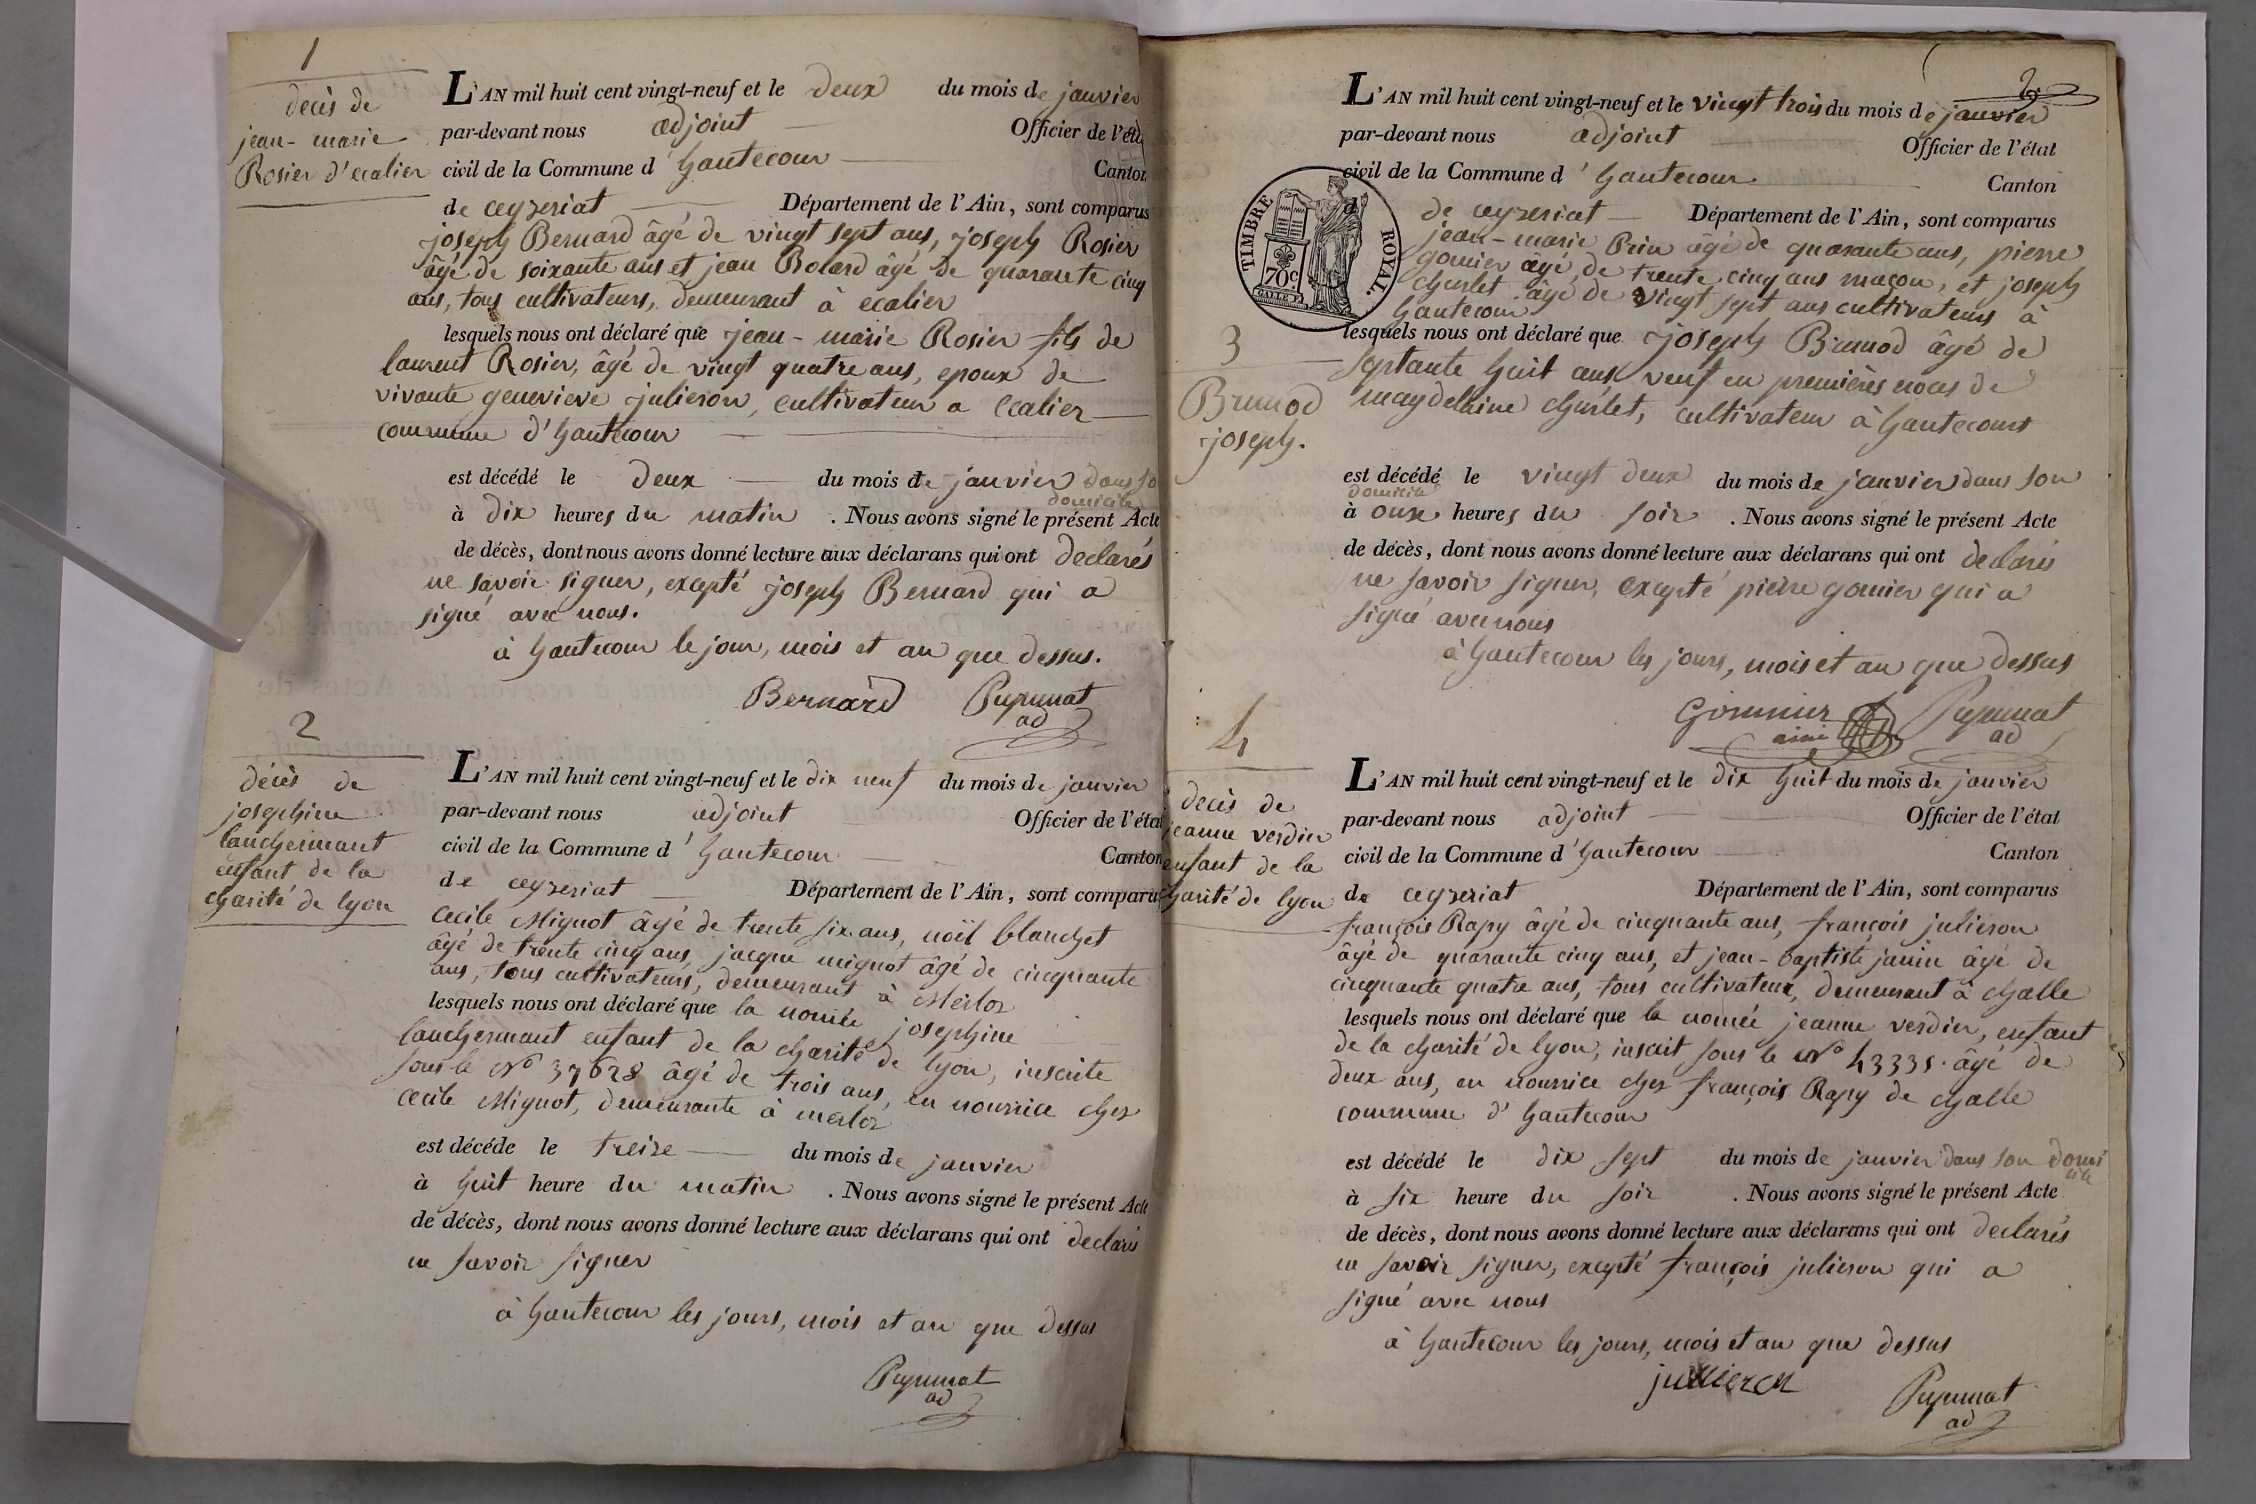 1
decès de
jean-marie
Rosier d'ecalier
L'AN mil huit cent vingt-neuf et le deux du mois de janvier
par-devant nous adjoint Officier de l'éta
civil de la Commune d'hautecour Canton
de ceyzeriat Département de l'Ain, sont comparus
joseph Bernard âgé de vingt sept ans, joseph Rosier
âgé de soixante ans et jean Bolard âgé de quarante cinq
ans, tous cultivateurs, demeurant à ecalier
lesquels nous ont déclaré que jean-marie Rosier fils de
laurent Rosier, âgé de vingt quatre ans, epoux de
vivante genevieve julieron, cultivateur a ecalier
commune d'hautecour
est décédé le deux du mois de janvier dans so
domicile
à dix heures du matin . Nous avons signé le présent Acte
de décès, dont nous avons donné lecture aux déclarans qui ont declarés
ne savoir signer, excepté joseph Bernard qui a
signé avec nous.
à hautecour le jour, mois et an que dessus.
Bernard Pupunat
ad
2
décès de
josephine
lanchermant
enfant de la
charité de lyon
L'AN mil huit cent vingt-neuf et le dix neuf du mois de janvier
par-devant nous adjoint Officier de l'état
civil de la Commune d'hautecour Canton
de ceyzeriat Département de l'Ain, sont comparus
Cecile Mignot âgé de trente six ans, noël blanchet
âgé de trente cinq ans, jacque mignot âgé de cinquante
ans, tous cultivateurs, demeurant à Merloz
lesquels nous ont déclaré que la nomée josephine
lanchermant enfant de la charité de lyon, inscrite
sous le No 37628 âgé de trois ans, en nourrice chez
cecile Mignot, demeurante à merloz
est décéde le treize du mois de janvier
à huit heure du matin . Nous avons signé le présent Acte
de décès, dont nous avons donné lecture aux déclarans qui ont declarés
ne savoir signer
à hautecour les jours, mois et an que dessus
Pupunat
ad
2
L'AN mil huit cent vingt-neuf et le vingt trois du mois de janvier
par-devant nous adjoint Officier de l'état
civil de la Commune d'hautecour Canton
TIMBRE ROYAL.
70c
de ceyzeriat Département de l'Ain, sont comparus
jean-marie Prin âgé de quarante ans, pierre
gomier âgé de trente cinq ans maçon, et joseph
charlet âgé de vingt sept ans cultivateurs à
hautecour
3
Brunod
joseph.
lesquels nous ont déclaré que joseph Brunod âgé de
septante huit ans veuf en premières noces de
magdelaine charlet, cultivateur à hautecourt
est décédé le vingt deux du mois de janvier dans son
domicile
à onze heures du soir . Nous avons signé le présent Acte
de décès, dont nous avons donné lecture aux déclarans qui ont declarés
ne savoir signer, excepté pierre gomier qui a
signé avec nous
à hautecour les jours, mois et an que dessus
Gommier Pupunat
ainé ad
4
decès de
jeanne verdier
enfant de la
charité de lyon
L'AN mil huit cent vingt-neuf et le dix huit du mois de janvier
par-devant nous adjoint Officier de l'état
civil de la Commune d'hautecour Canton
de ceyzeriat Département de l'Ain, sont comparus
françois Rapy âgé de cinquante ans, françois julieron
âgé de quarante cinq ans, et jean-baptiste janin âgé de
cinquante quatre ans, tous cultivateur, demeurant à challe
lesquels nous ont déclaré que la nomée jeanne verdier, enfant
de la charité de lyon, inscrit sous le No 43335. âgé de
deux ans, en nourrice chez françois Rapy de challe
commune d'hautecour
est décédé le dix sept du mois de janvier dans son domi
cile
à six heure du soir . Nous avons signé le présent Acte
de décès, dont nous avons donné lecture aux déclarans qui ont declarés
ne savoir signer, excepté françois julieron qui a
signé avec nous
à hautecour les jours, mois et an que dessus
jullieron Pupunat
ad